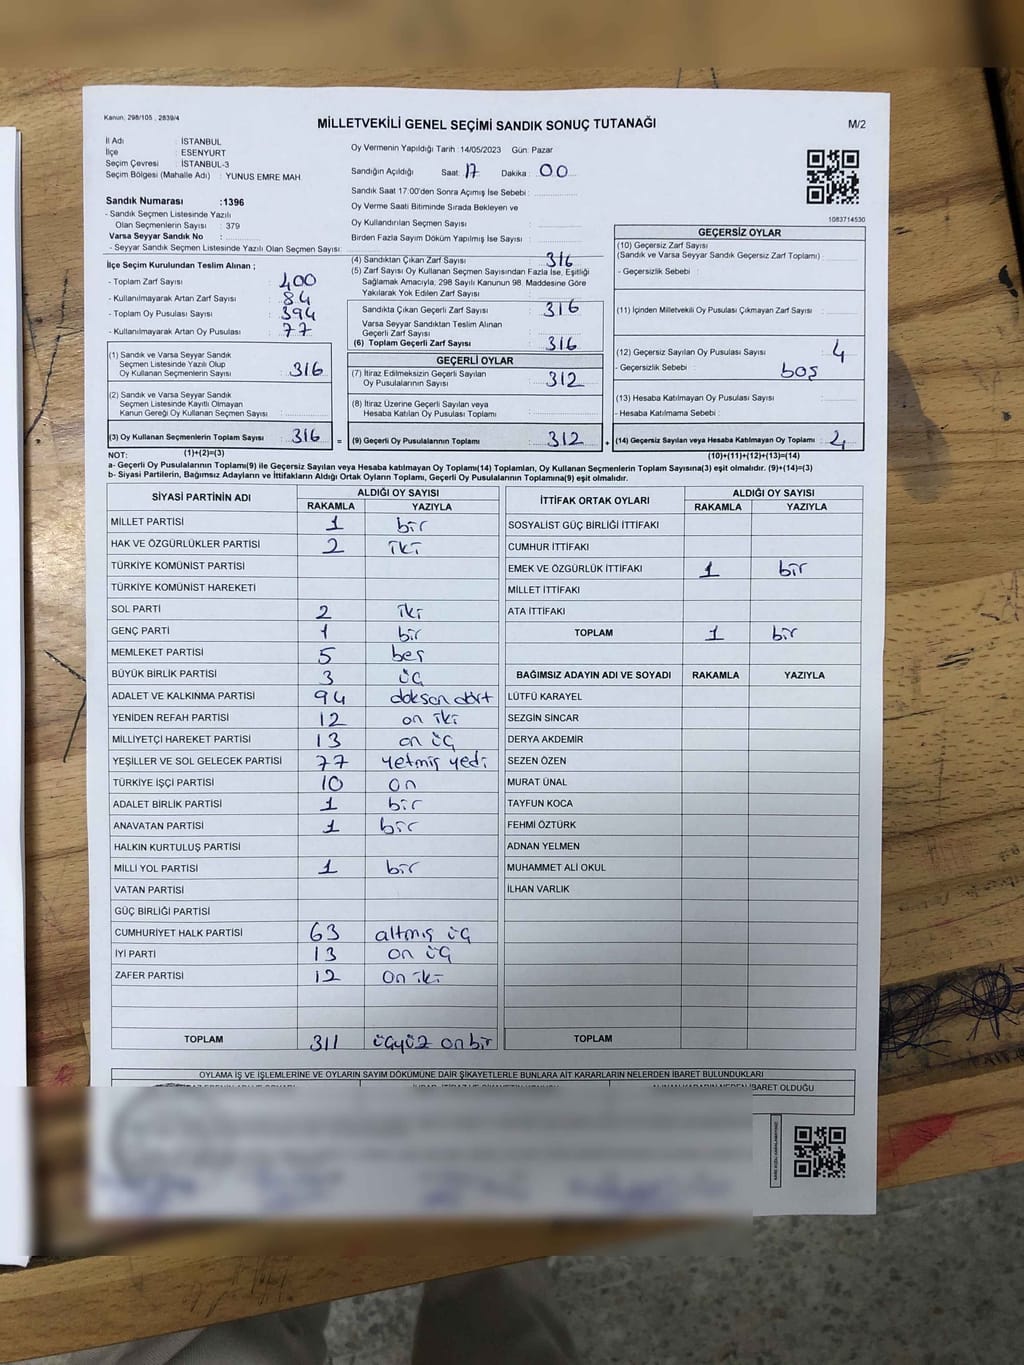 Kanun, 298/105 , 2839/4
MİLLETVEKİLİ GENEL SEÇİMİ SANDIK SONUÇ TUTANAĞI
M/2
İl Adı : İSTANBUL
İlçe : ESENYURT
Seçim Çevresi : İSTANBUL-3
Seçim Bölgesi (Mahalle Adı) : YUNUS EMRE MAH.
Sandık Numarası :1396
- Sandık Seçmen Listesinde Yazılı
Olan Seçmenlerin Sayısı : 379
Varsa Seyyar Sandık No :
- Seyyar Sandık Seçmen Listesinde Yazılı Olan Seçmen Sayısı:
Oy Vermenin Yapıldığı Tarih :14/05/2023 Gün: Pazar
Sandığın Açıldığı Saat: 17 Dakika : 00
Sandık Saat 17:00'den Sonra Açımış İse Sebebi :
Oy Verme Saati Bitiminde Sırada Bekleyen ve
Oy Kullandırılan Seçmen Sayısı :
Birden Fazla Sayım Döküm Yapılmış İse Sayısı :
1083714530
İlçe Seçim Kurulundan Teslim Alınan ;
- Toplam Zarf Sayısı : 400
- Kullanılmayarak Artan Zarf Sayısı : 84
- Toplam Oy Pusulası Sayısı : 394
- Kullanılmayarak Artan Oy Pusulası : 77
(1) Sandık ve Varsa Seyyar Sandık
Seçmen Listesinde Yazılı Olup
Oy Kullanan Seçmenlerin Sayısı : 316
(2) Sandık ve Varsa Seyyar Sandık
Seçmen Listesinde Kayıtlı Olmayan
Kanun Gereği Oy Kullanan Seçmen Sayısı :
(3) Oy Kullanan Seçmenlerin Toplam Sayısı : 316 =
(1)+(2)=(3)
(4) Sandıktan Çıkan Zarf Sayısı : 316
(5) Zarf Sayısı Oy Kullanan Seçmen Sayısından Fazla İse, Eşitliği
Sağlamak Amacıyla, 298 Sayılı Kanunun 98. Maddesine Göre
Yakılarak Yok Edilen Zarf Sayısı :
Sandıkta Çıkan Geçerli Zarf Sayısı : 316
Varsa Seyyar Sandıktan Teslim Alınan
Geçerli Zarf Sayısı :
(6) Toplam Geçerli Zarf Sayısı : 316
GEÇERLİ OYLAR
(7) İtiraz Edilmeksizin Geçerli Sayılan
Oy Pusulalarının Sayısı : 312
(8) İtiraz Üzerine Geçerli Sayılan veya
Hesaba Katılan Oy Pusulası Toplamı :
(9) Geçerli Oy Pusulalarının Toplamı : 312 +
GEÇERSİZ OYLAR
(10) Geçersiz Zarf Sayısı
(Sandık ve Varsa Seyyar Sandık Geçersiz Zarf Toplamı) :
- Geçersizlik Sebebi :
(11) İçinden Milletvekili Oy Pusulası Çıkmayan Zarf Sayısı:
(12) Geçersiz Sayılan Oy Pusulası Sayısı : 4
- Geçersizlik Sebebi : boş
(13) Hesaba Katılmayan Oy Pusulası Sayısı :
- Hesaba Katılmama Sebebi :
(14) Geçersiz Sayılan veya Hesaba Katılmayan Oy Toplamı : 4
(10)+(11)+(12)+(13)=(14)
NOT:
a- Geçerli Oy Pusulalarının Toplamı(9) ile Geçersiz Sayılan veya Hesaba katılmayan Oy Toplamı(14) Toplamları, Oy Kullanan Seçmenlerin Toplam Sayısına(3) eşit olmalıdır. (9)+(14)=(3)
b- Siyasi Partilerin, Bağımsız Adayların ve İttifakların Aldığı Ortak Oyların Toplamı, Geçerli Oy Pusulalarının Toplamına(9) eşit olmalıdır.
SİYASİ PARTİNİN ADI ALDIĞI OY SAYISI
RAKAMLA YAZIYLA
MİLLET PARTİSİ 1 bir
HAK VE ÖZGÜRLÜKLER PARTİSİ 2 iki
TÜRKİYE KOMÜNİST PARTİSİ
TÜRKİYE KOMÜNİST HAREKETİ
SOL PARTİ 2 iki
GENÇ PARTİ 1 bir
MEMLEKET PARTİSİ 5 beş
BÜYÜK BİRLİK PARTİSİ 3 üç
ADALET VE KALKINMA PARTİSİ 94 doksan dört
YENİDEN REFAH PARTİSİ 12 on iki
MİLLİYETÇİ HAREKET PARTİSİ 13 on üç
YEŞİLLER VE SOL GELECEK PARTİSİ 77 yetmiş yedi
TÜRKİYE İŞÇİ PARTİSİ 10 on
ADALET BİRLİK PARTİSİ 1 bir
ANAVATAN PARTİSİ 1 bir
HALKIN KURTULUŞ PARTİSİ
MİLLİ YOL PARTİSİ 1 bir
VATAN PARTİSİ
GÜÇ BİRLİĞİ PARTİSİ
CUMHURİYET HALK PARTİSİ 63 altmış üç
İYİ PARTİ 13 on üç
ZAFER PARTİSİ 12 on iki
TOPLAM 311 üçyüz onbir
İTTİFAK ORTAK OYLARI ALDIĞI OY SAYISI
RAKAMLA YAZIYLA
SOSYALİST GÜÇ BİRLİĞİ İTTİFAKI
CUMHUR İTTİFAKI
EMEK VE ÖZGÜRLÜK İTTİFAKI 1 bir
MİLLET İTTİFAKI
ATA İTTİFAKI
TOPLAM 1 bir
BAĞIMSIZ ADAYIN ADI VE SOYADI RAKAMLA YAZIYLA
LÜTFÜ KARAYEL
SEZGİN SİNCAR
DERYA AKDEMİR
SEZEN ÖZEN
MURAT ÜNAL
TAYFUN KOCA
FEHMİ ÖZTÜRK
ADNAN YELMEN
MUHAMMET ALİ OKUL
İLHAN VARLIK
TOPLAM
OYLAMA İŞ VE İŞLEMLERİNE VE OYLARIN SAYIM DÖKÜMÜNE DAİR ŞİKAYETLERLE BUNLARA AİT KARARLARIN NELERDEN İBARET BULUNDUKLARI
İBARET OLDUĞU